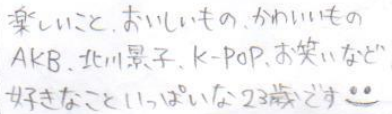 楽しいこと、おいしいもの、かわいいもの
AKB、北川景子、K-POP、お笑いなど
好きなこといっぱいな23歳です